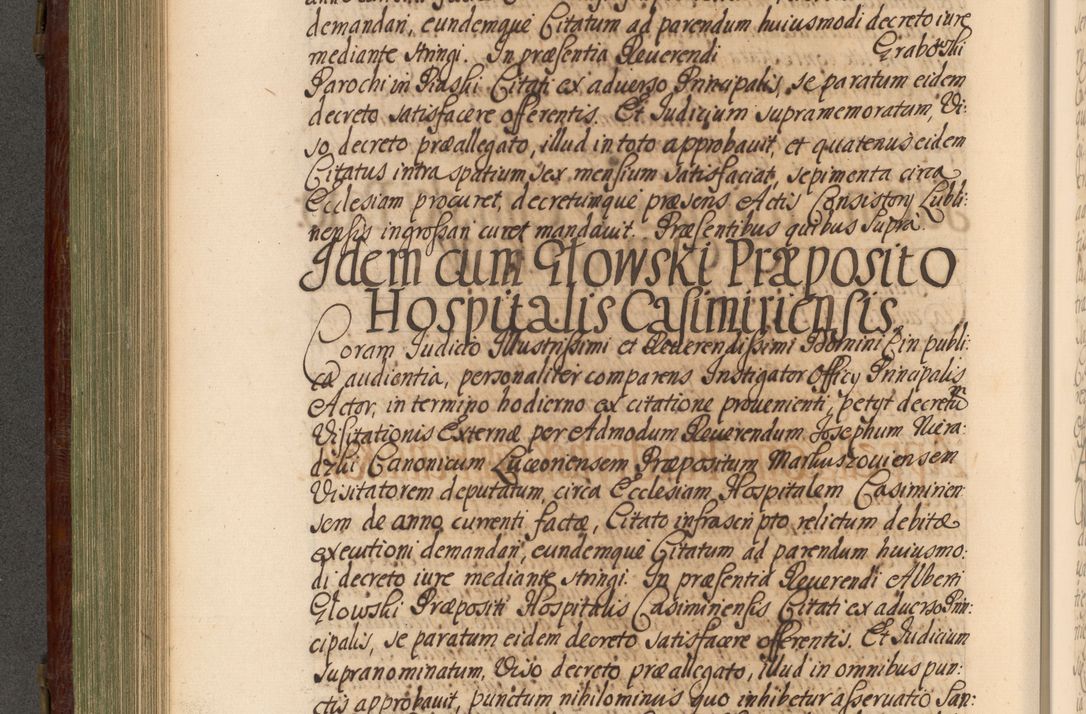 demandari, eundemque Citatum ad parendum huiusmodi decreto iure
mediante stringi. In præsentia Reuerendi Graboski
Parochi in Piaski Citati ex aduerso Principalis, se paratum eidem
decreto satisfacere offerentis. Et Judicium supramemoratum, Vi:
so decreto præallegato, illud in toto approbauit, et quatenus eidem
Citatus intra spatium sex mensium satisfaciat, sepimenta circa
Ecclesiam procuret, decretumque præsens Actis Consistorij Lubli:
nensis ingrossari curet mandauit. Præsentibus quibus supra.
Idem cum Głowski Præposito
Hospitalis Casimiriensis
Coram Judicio Illustrissimi et Reuerendissimi Domini in publi:
ca audientia, personaliter comparens Instigator Officij Principalis
Actor, in termino hodierno ex citatione prouenienti, petijt decretum
Visitationis Externæ per Admodum Reuerendum Josephum Niera:
dzki Canonicum Luceoriensem Præpositum Markuszouiensem
Visitatorem deputatum, circa Ecclesiam Hospitalem Casimirien
sem de anno currenti factæ, Citato infrascripto relictum debitæ
executioni demandari, eundemque Citatum ad parendum huiusmo:
di decreto iure mediante stringi. In præsentia Reuerendi Alberti
Głowski Præpositi Hospitalis Casimiriensis Citati ex aduerso Prin:
cipalis, se paratum eidem decreto satisfacere offerentis. Et Judicium
supranominatum, Viso decreto præallegato, illud in omnibus pun:
ctis approbauit, punctum nihilominus quo inhibetur asseruatio San: